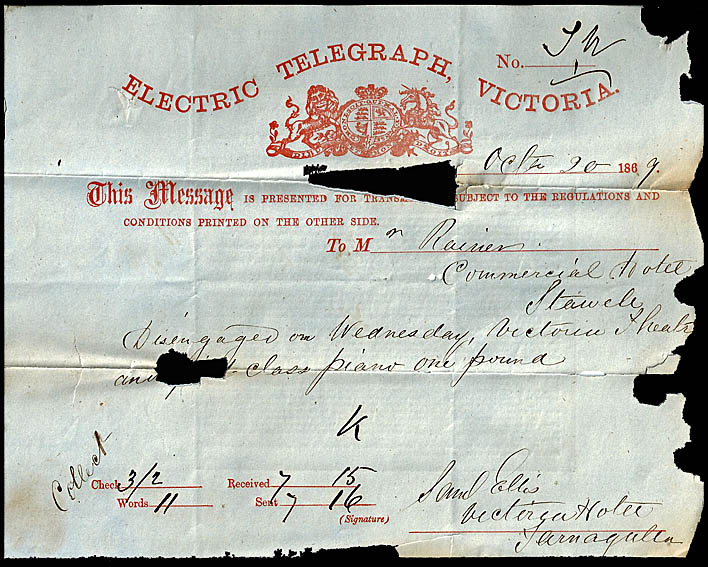 ELECTRIC TELEGRAPH, VICTORIA.
No. S N
1
Octr 20 1869.
This Message IS PRESENTED FOR SUBJECT TO THE REGULATIONS AND
CONDITIONS PRINTED ON THE OTHER SIDE.
To Mr Rainer
Commercial Hotel
Stawell
Disengaged on Wednesday, Victoria
and class piano one pound
K
Collect
Check 3/2 Received 7 15
Words 11 Sent 7 16
(Signature)
Saml Ellis
Victoria Hotel
Tarnagulla